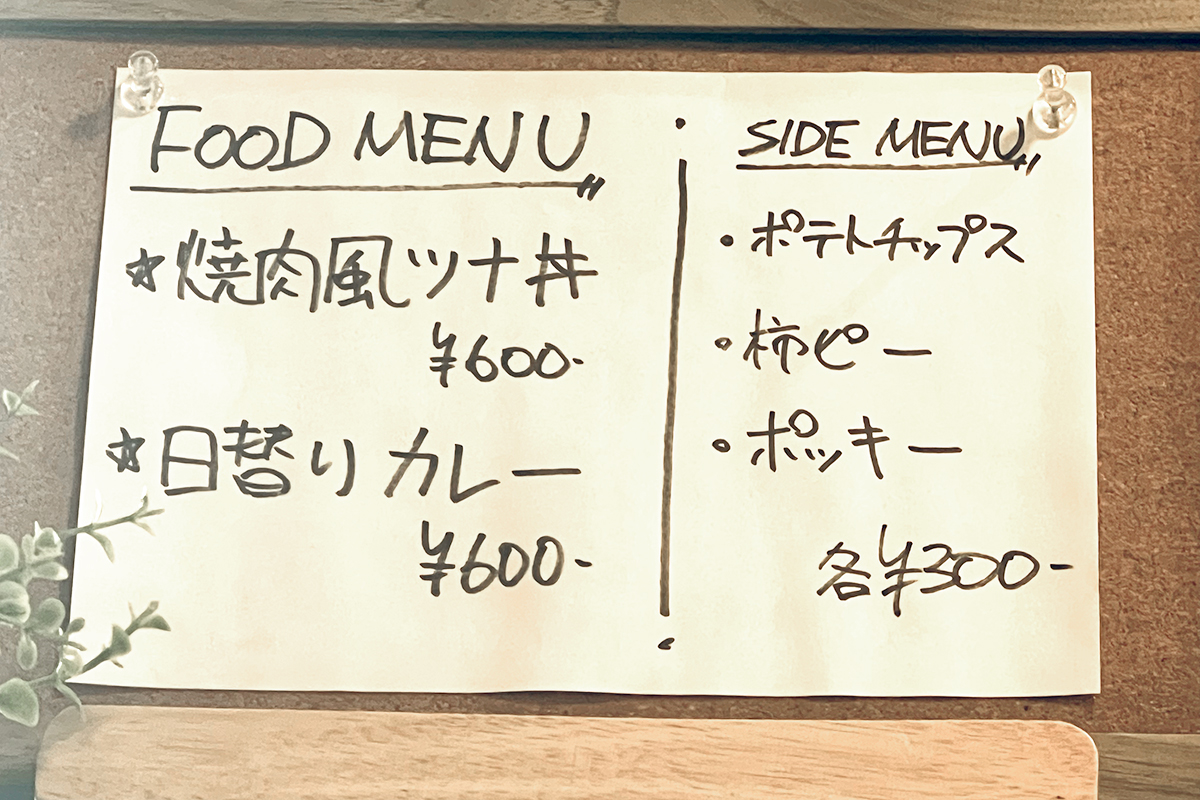 FOOD MENU〃
☆焼肉風ツナ丼
¥600-
☆日替りカレー
¥600-
SIDE MENU〃
・ポテトチップス
・柿ピー
・ポッキー
各¥300-